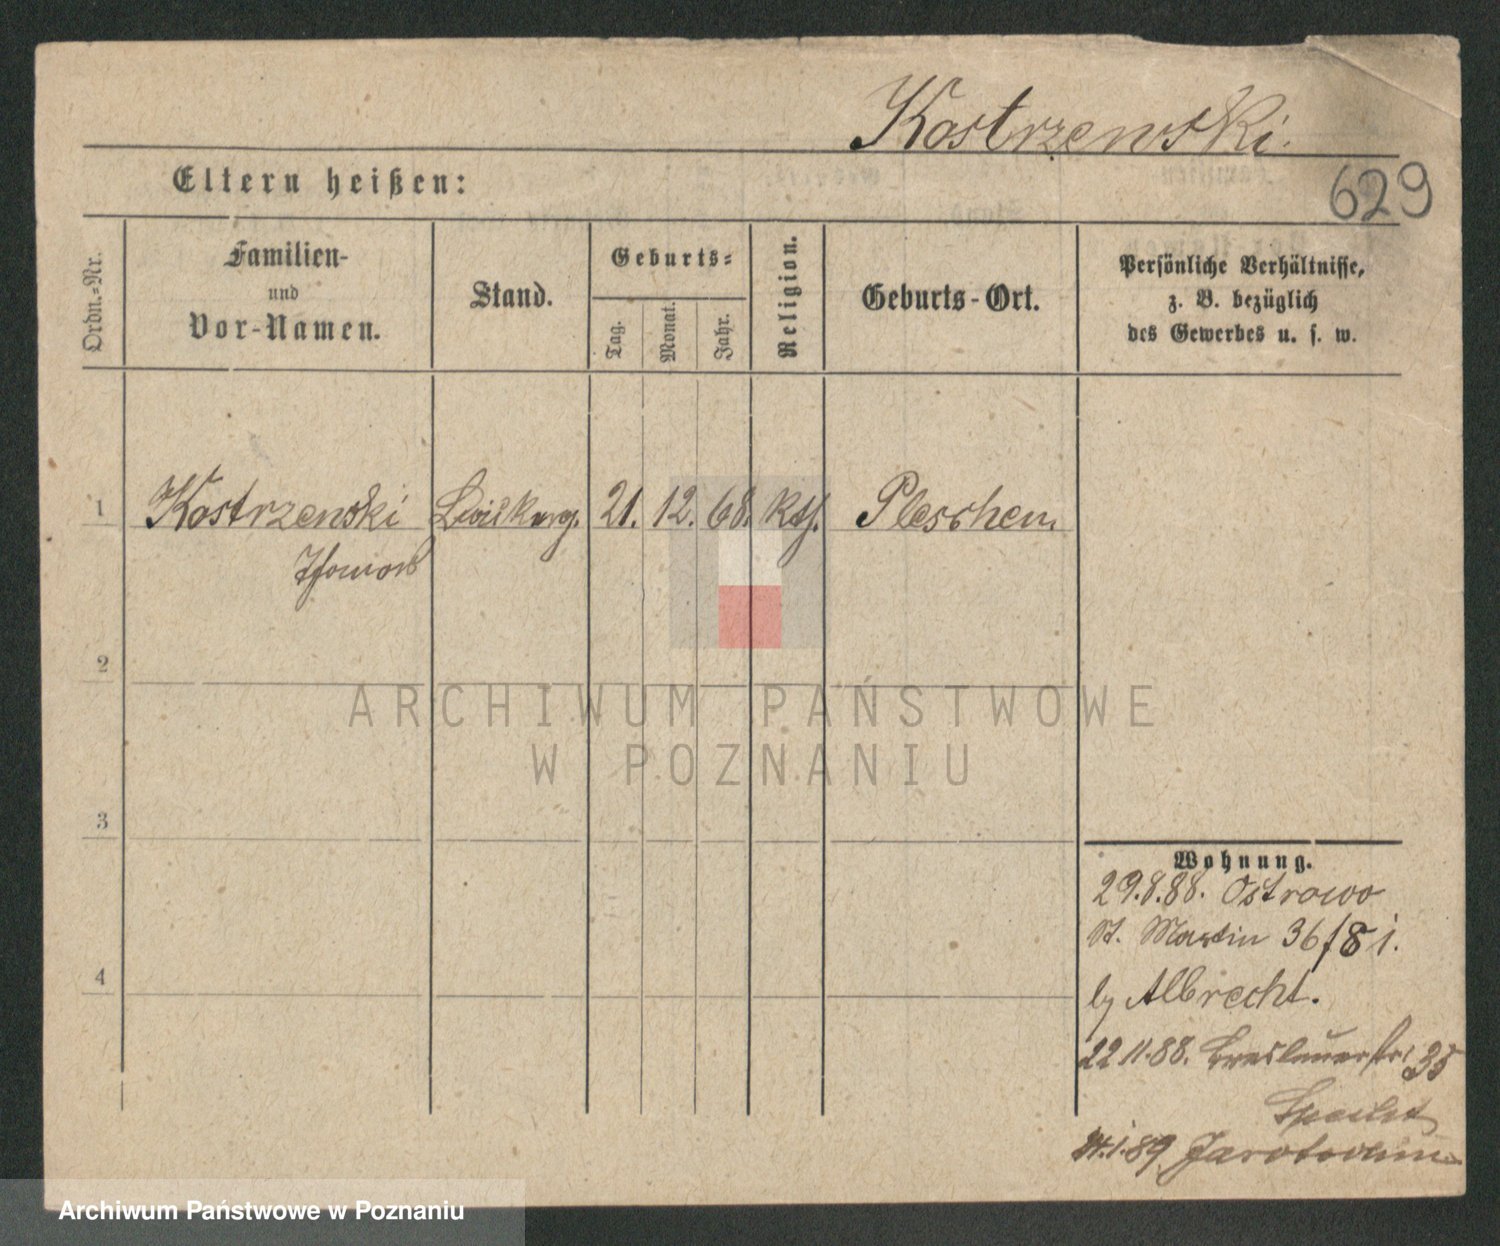 Kostrzewski.
Eltern heißen:
629
Ordn.-Nr.
Familien-
und
Vor-Namen.
Stand.
Geburts-
Tag.
Monat.
Jahr.
Religion.
Geburts-Ort.
Persönliche Verhältnisse,
z. B. bezüglich
des Gewerbes u. s. w.
1 Kostrzewski 21. 12. 68. kth. Pleschen
2
3
4
Wohnung.
29.8.88. Ostrowo
St. Martin 36/8 i.
by Albrecht.
22 11.88. Breslauerstr. 35
Specht
1.89 Jarotschin
ARCHIWUM PAŃSTWOWE
W POZNANIU
Archiwum Państwowe w Poznaniu